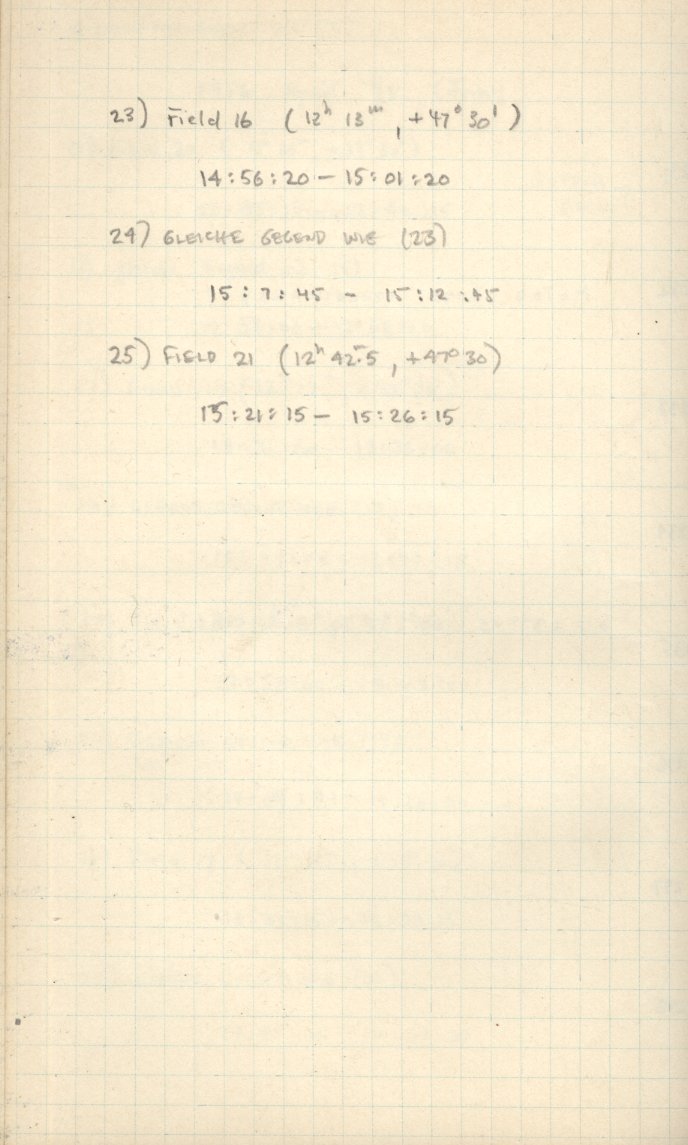 23) Field 16 (12ʰ 13ᵐ, +47° 30')
14:56:20 – 15:01:20
24) GLEICHE GEGEND WIE (23)
15:7:45 – 15:12:45
25) FIELD 21 (12ʰ 42.5, +47° 30)
15:21:15 – 15:26:15